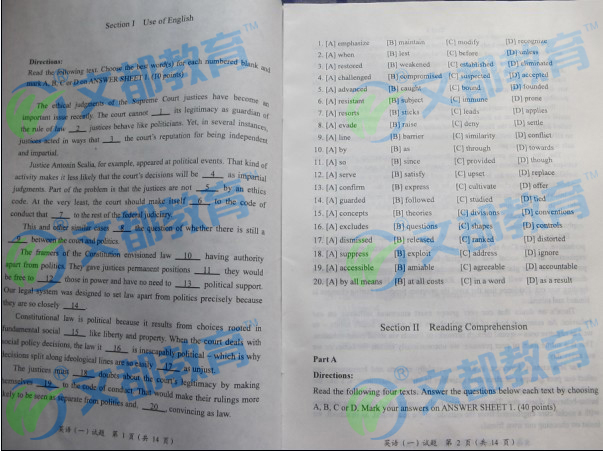 Section I Use of English
Directions:
Read the following text. Choose the best word(s) for each numbered blank and
mark A, B, C or D on ANSWER SHEET 1. (10 points)
The ethical judgments of the Supreme Court justices have become an
important issue recently. The court cannot 1 its legitimacy as guardian of
the rule of law 2 justices behave like politicians. Yet, in several instances,
justices acted in ways that 3 the court's reputation for being independent
and impartial.
Justice Antonin Scalia, for example, appeared at political events. That kind of
activity makes it less likely that the court's decisions will be 4 as impartial
judgments. Part of the problem is that the justices are not 5 by an ethics
code. At the very least, the court should make itself 6 to the code of
conduct that 7 to the rest of the federal judiciary.
This and other similar cases 8 the question of whether there is still a
9 between the court and politics.
The framers of the Constitution envisioned law 10 having authority
apart from politics. They gave justices permanent positions 11 they would
be free to 12 those in power and have no need to 13 political support.
Our legal system was designed to set law apart from politics precisely because
they are so closely 14
Constitutional law is political because it results from choices rooted in
fundamental social 15 like liberty and property. When the court deals with
social policy decisions, the law it 16 is inescapably political – which is why
decisions split along ideological lines are so easily 17 as unjust.
The justices must 18 doubts about the court's legitimacy by making
themselves 19 to the code of conduct. That would make their rulings more
likely to be seen as separate from politics and, 20 convincing as law.
英语(一)试题 第 1 页(共 14 页)
1. [A] emphasize [B] maintain [C] modify [D] recognize
2. [A] when [B] lest [C] before [D] unless
3. [A] restored [B] weakened [C] established [D] eliminated
4. [A] challenged [B] compromised [C] suspected [D] accepted
5. [A] advanced [B] caught [C] bound [D] founded
6. [A] resistant [B] subject [C] immune [D] prone
7. [A] resorts [B] sticks [C] leads [D] applies
8. [A] evade [B] raise [C] deny [D] settle
9. [A] line [B] barrier [C] similarity [D] conflict
10. [A] by [B] as [C] through [D] towards
11. [A] so [B] since [C] provided [D] though
12. [A] serve [B] satisfy [C] upset [D] replace
13. [A] confirm [B] express [C] cultivate [D] offer
14. [A] guarded [B] followed [C] studied [D] tied
15. [A] concepts [B] theories [C] divisions [D] conventions
16. [A] excludes [B] questions [C] shapes [D] controls
17. [A] dismissed [B] released [C] ranked [D] distorted
18. [A] suppress [B] exploit [C] address [D] ignore
19. [A] accessible [B] amiable [C] agreeable [D] accountable
20. [A] by all means [B] at all costs [C] in a word [D] as a result
Section II Reading Comprehension
Part A
Directions:
Read the following four texts. Answer the questions below each text by choosing
A, B, C or D. Mark your answers on ANSWER SHEET 1. (40 points)
英语(一)试题 第 2 页(共 14 页)
文都教育